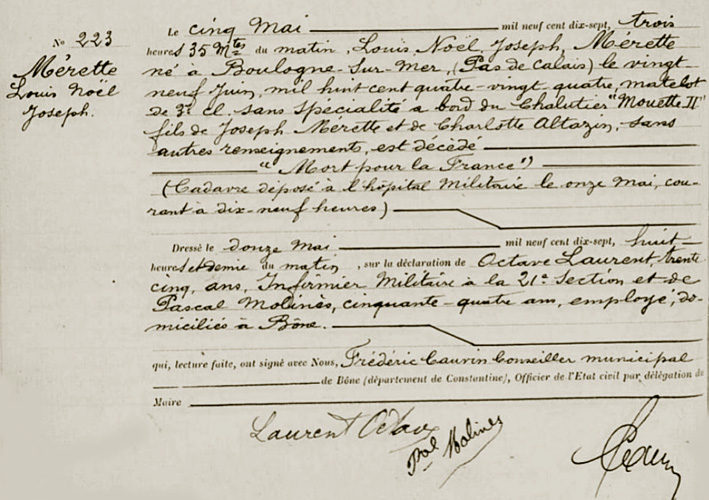 Nº 223
Mérette
Louis Noël
Joseph.
Le cinq Mai mil neuf cent dix-sept, trois
heures 35 Mtes du matin, Louis, Noël, Joseph, Mérette
né à Boulogne-sur-Mer, (Pas de Calais) le vingt-
neuf Juin, mil huit cent quatre-vingt-quatre, matelot
de 3e cl. sans spécialité a bord du Chalutier "Mouette II"
fils de Joseph Mérette et de Charlotte Altazin, sans
autres renseignements, est décédé
"Mort pour la France")
(Cadavre déposé à l'hôpital Militaire le onze Mai, cou-
rant à dix-neuf heures)
Dressé le douze Mai mil neuf cent dix-sept, huit
heures et demie du matin, sur la déclaration de Octave Laurent, trente
cinq, ans, Infirmier Militaire à la 21e Section et de
Pascal Molinès, cinquante-quatre ans, employé, do-
miciliés à Bône.
qui, lecture faite, ont signé avec Nous, Frédéric Caurin Conseiller municipal
de Bône (département de Constantine), Officier de l'Etat civil par délégation du
Maire
Laurent Octave
Pal Molines